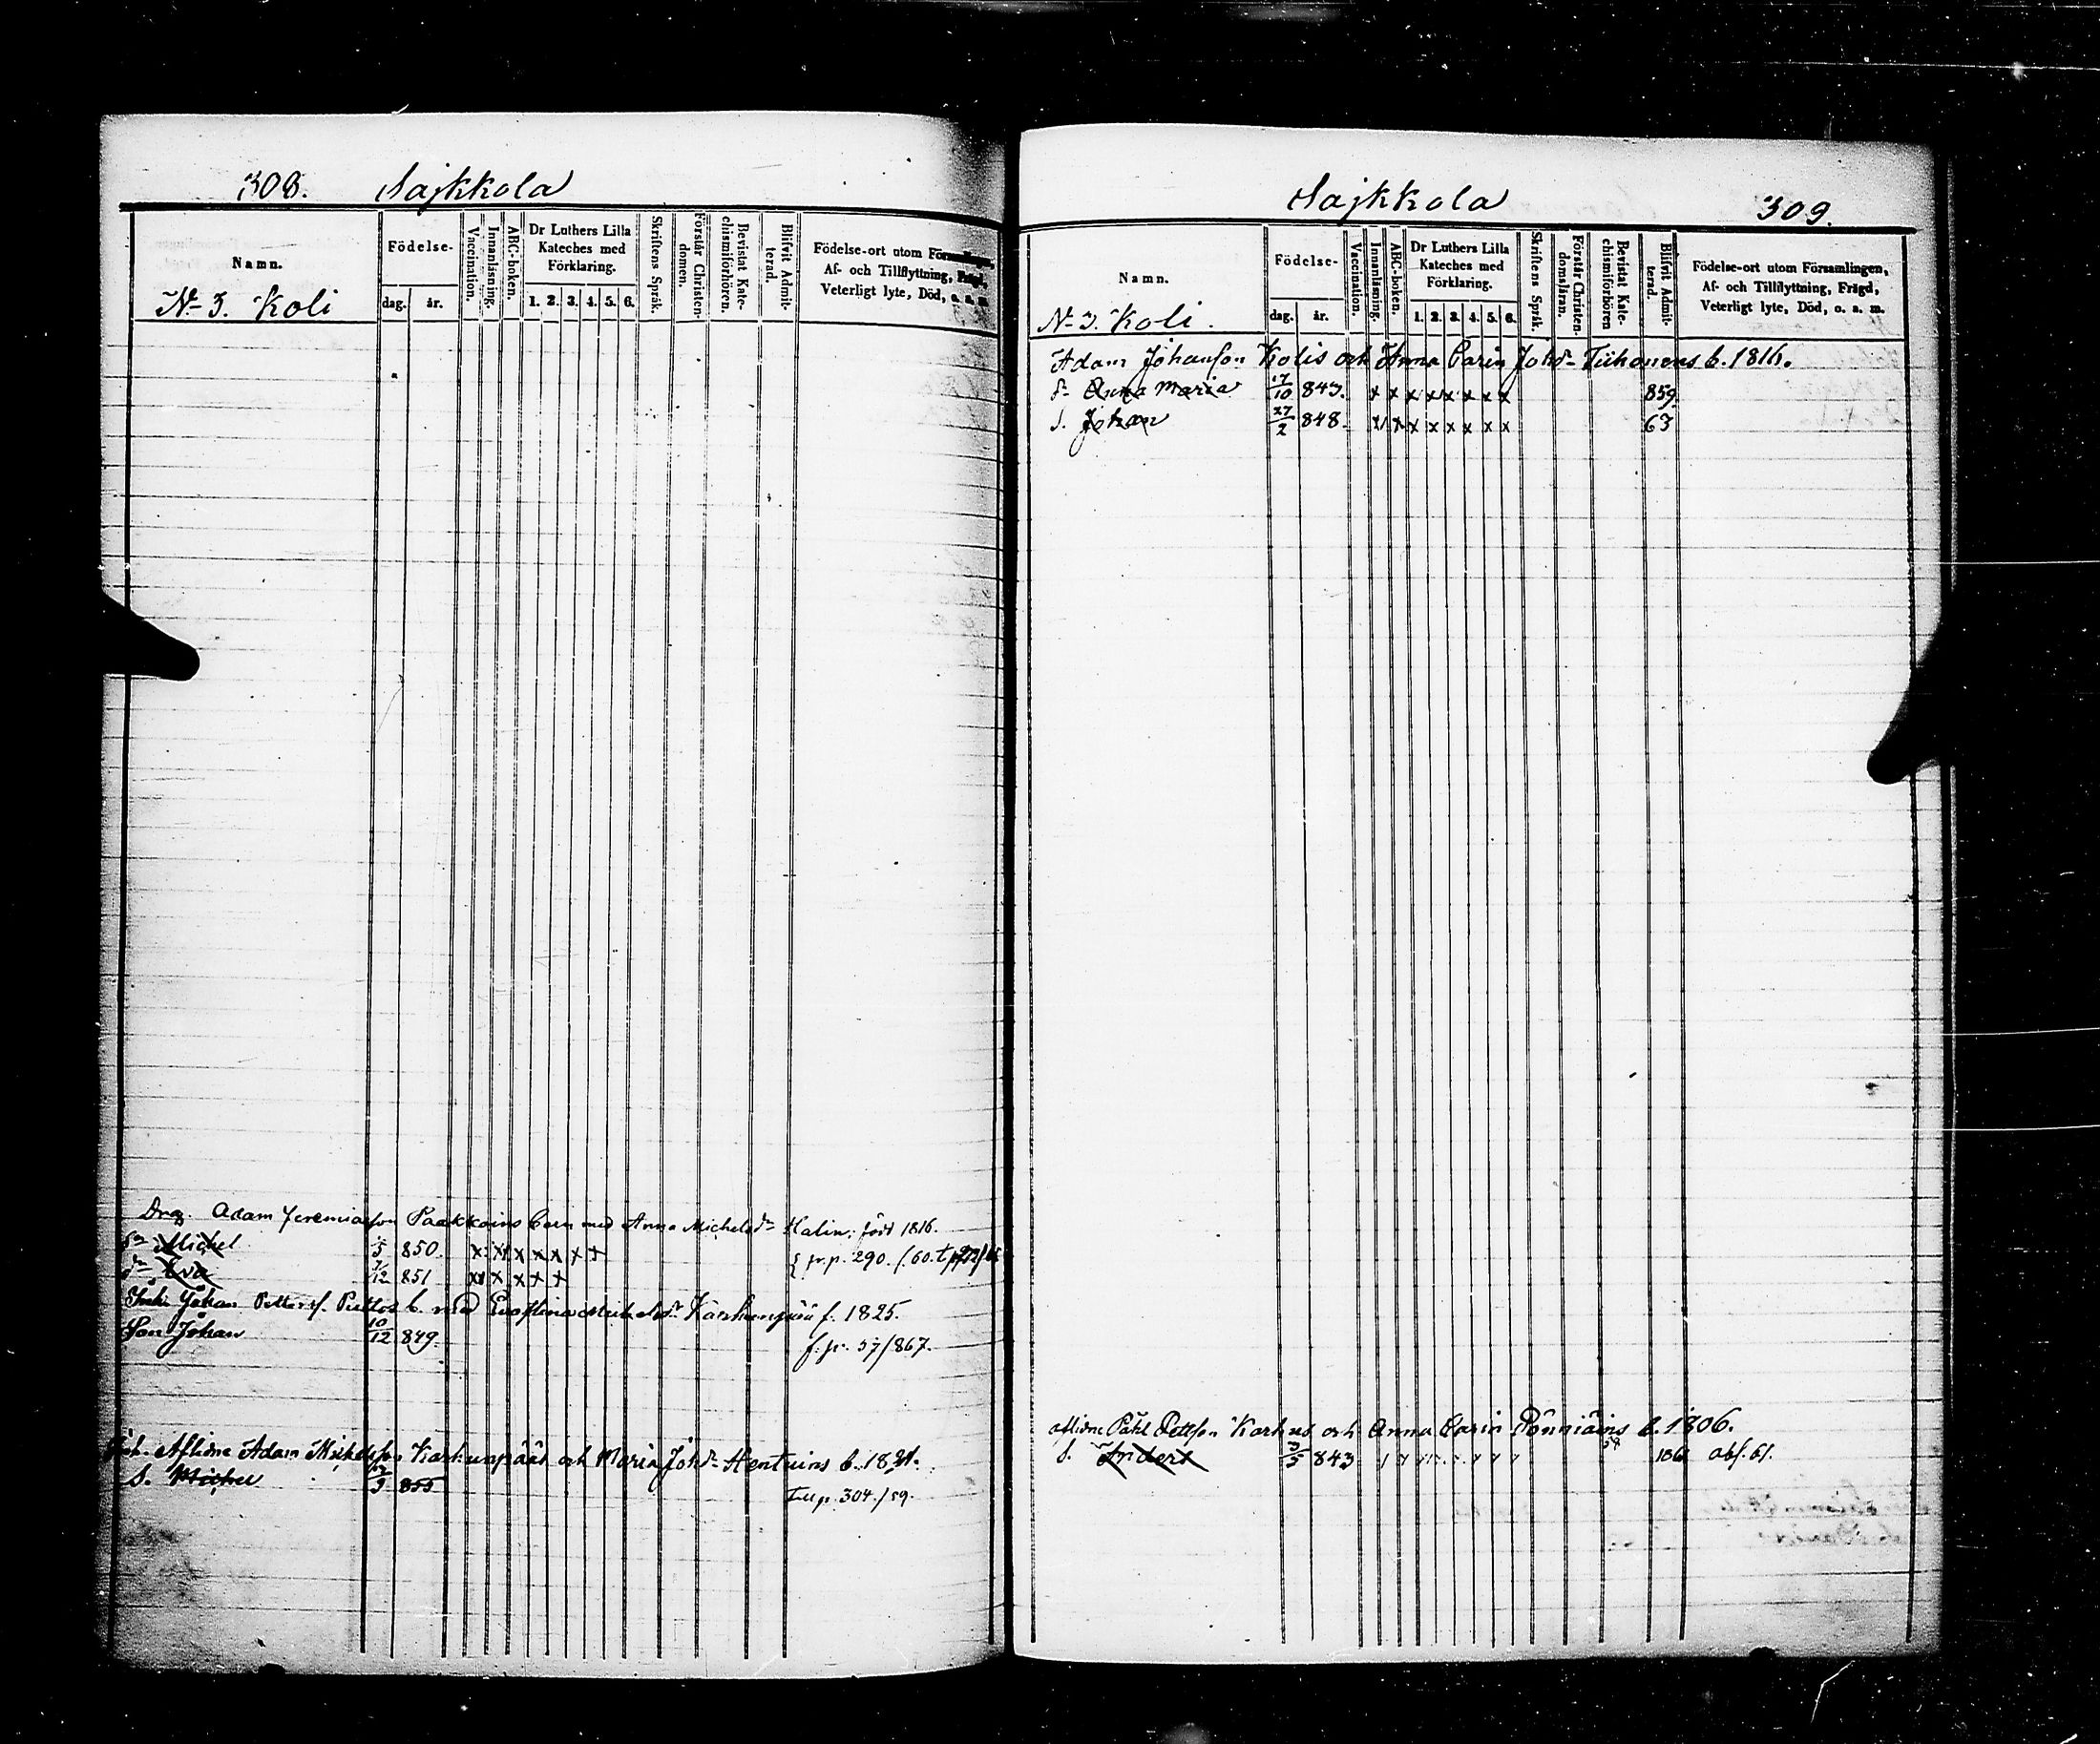 308. Sajkkola
Namn.
No 3. Koli
Födelse-
dag. år.
Vaccination.
Innanläsning.
ABC-boken.
Dr Luthers Lilla
Kateches med
Förklaring.
1. 2. 3. 4. 5. 6.
Skriftens Språk.
Förstår Christen-
domen.
Bevistat Kate-
chismiförhören.
Blifvit Admit-
terad.
Födelse-ort utom Församlingen,
Af- och Tillflyttning, Frägd,
Veterligt lyte, Död, o. a. m.
Drg. Adam Jeremiasson Paakkoins barn med Anna Michelsdr Halin: född 1816.
Michel 5 850. x x x x x x x x { fr. p. 290. /.60.
Eva 12 851 x x x x x
Johan Petterss. Puttos b. med Eva f. 1825.
Son Johan 10/12 849. f. p. 57/867.
Aflidne Adam Michelsson Karhunpäät och Maria Johdr Hentuins b. 1821.
S. Michel 9 855 Till p. 304./59.
Sajkkola 309.
Namn.
No 3. Koli.
Födelse-
dag. år.
Vaccination.
Innanläsning.
ABC-boken.
Dr Luthers Lilla
Kateches med
Förklaring.
1. 2. 3. 4. 5. 6.
Skriftens Språk.
Förstår Christen-
domsläran.
Bevistat Kate-
chismiförhören
Blifvit Admit-
terad.
Födelse-ort utom Församlingen,
Af- och Tillflyttning, Frägd,
Veterligt lyte, Död, o. a. m.
Adam Johansson Kolis och Anna Carin Johdr Tiihonens b. 1816.
dr Anna Maria 17/10 843. x x x x x x x x 859
S. Johan 27/2 848. x x x x x x x x 63
aflidne Påhl Pettsson Karhus och Anna Carin Rönniäins b. 1806.
S. Anders 3/5 843 186 abs. 61.